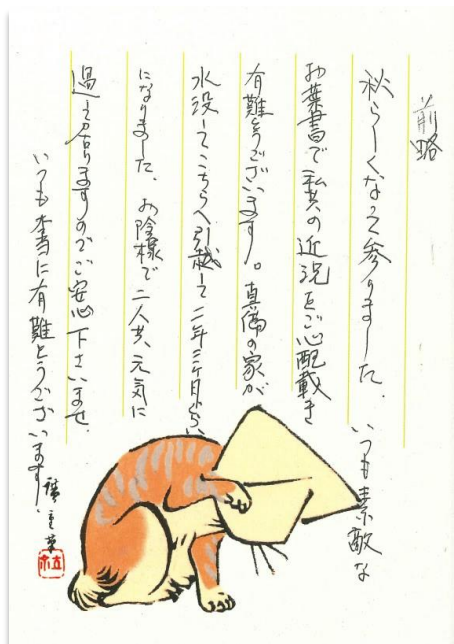 前略
秋らしくなって参りました、いつも素敵な
お葉書で私共の近況をご心配戴き
有難うございます。真備の家が
水没してこちらへ引越して二年三ヶ月くらい
になりました、お陰様で二人共元気に
過して居りますのでご安心下さいませ、
いつも本当に有難とうございます、
廣重筆